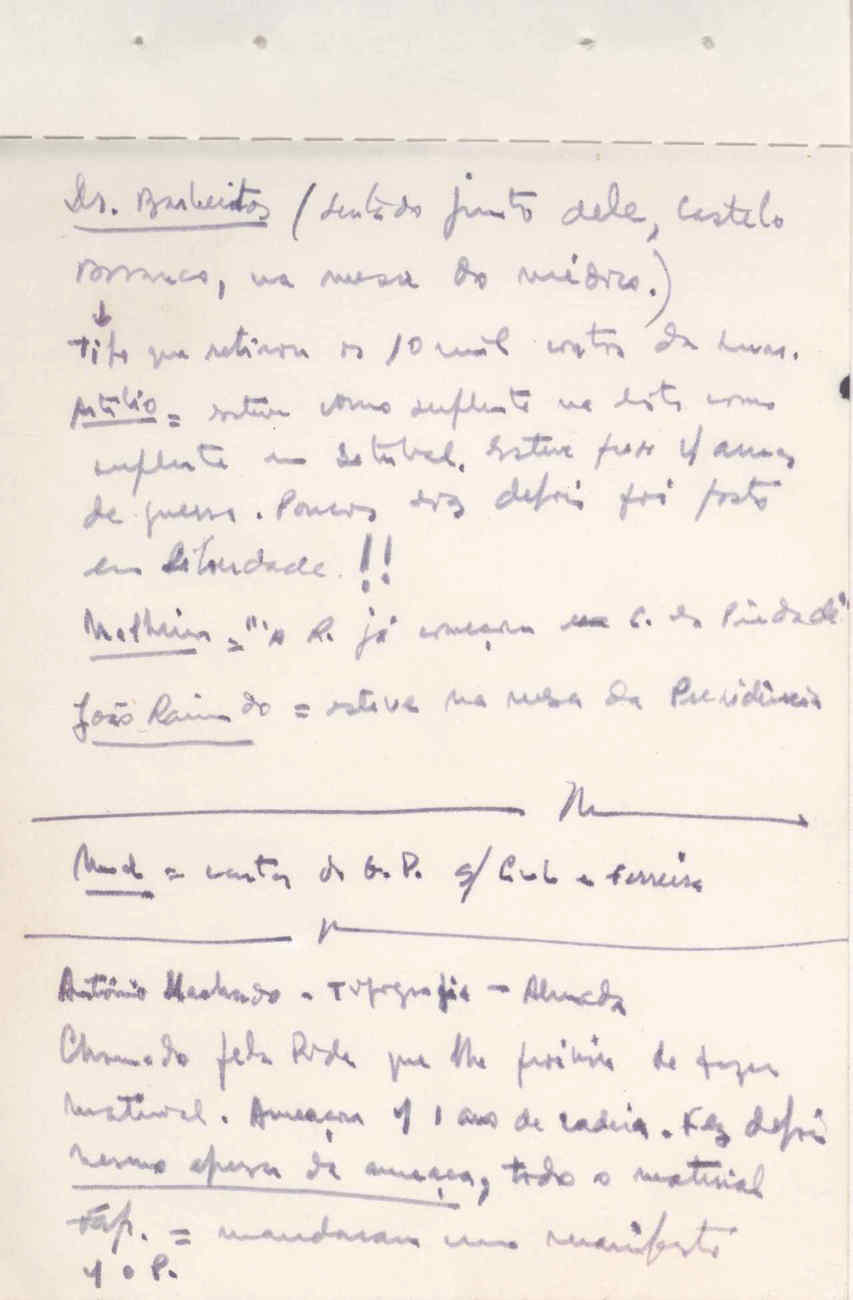 Dr. Barbeitos (sentado junto dele, Castelo
Branco, na mesa do médico.)
↓
Tipo que retirou os 10 mil contos da
= esteve como suplente na lista como
suplente em Setúbal. Esteve preso 4 annos
de guerra. Poucos dias depois foi posto
em liberdade.!!
Matheus = "A R. já começou C. da Piedade"
João Raimundo = esteve na mesa da Presidência
= cartas do G. P. s/ e Ferreira
António Machado - Tipografia - Almada
Chamado pela Pide que lhe proibiu de fazer
material. Ameaçou 1 ano de cadeia. Fez depois
mesmo apesar da ameaça, todo o material
= mandaram um manifesto
o P.